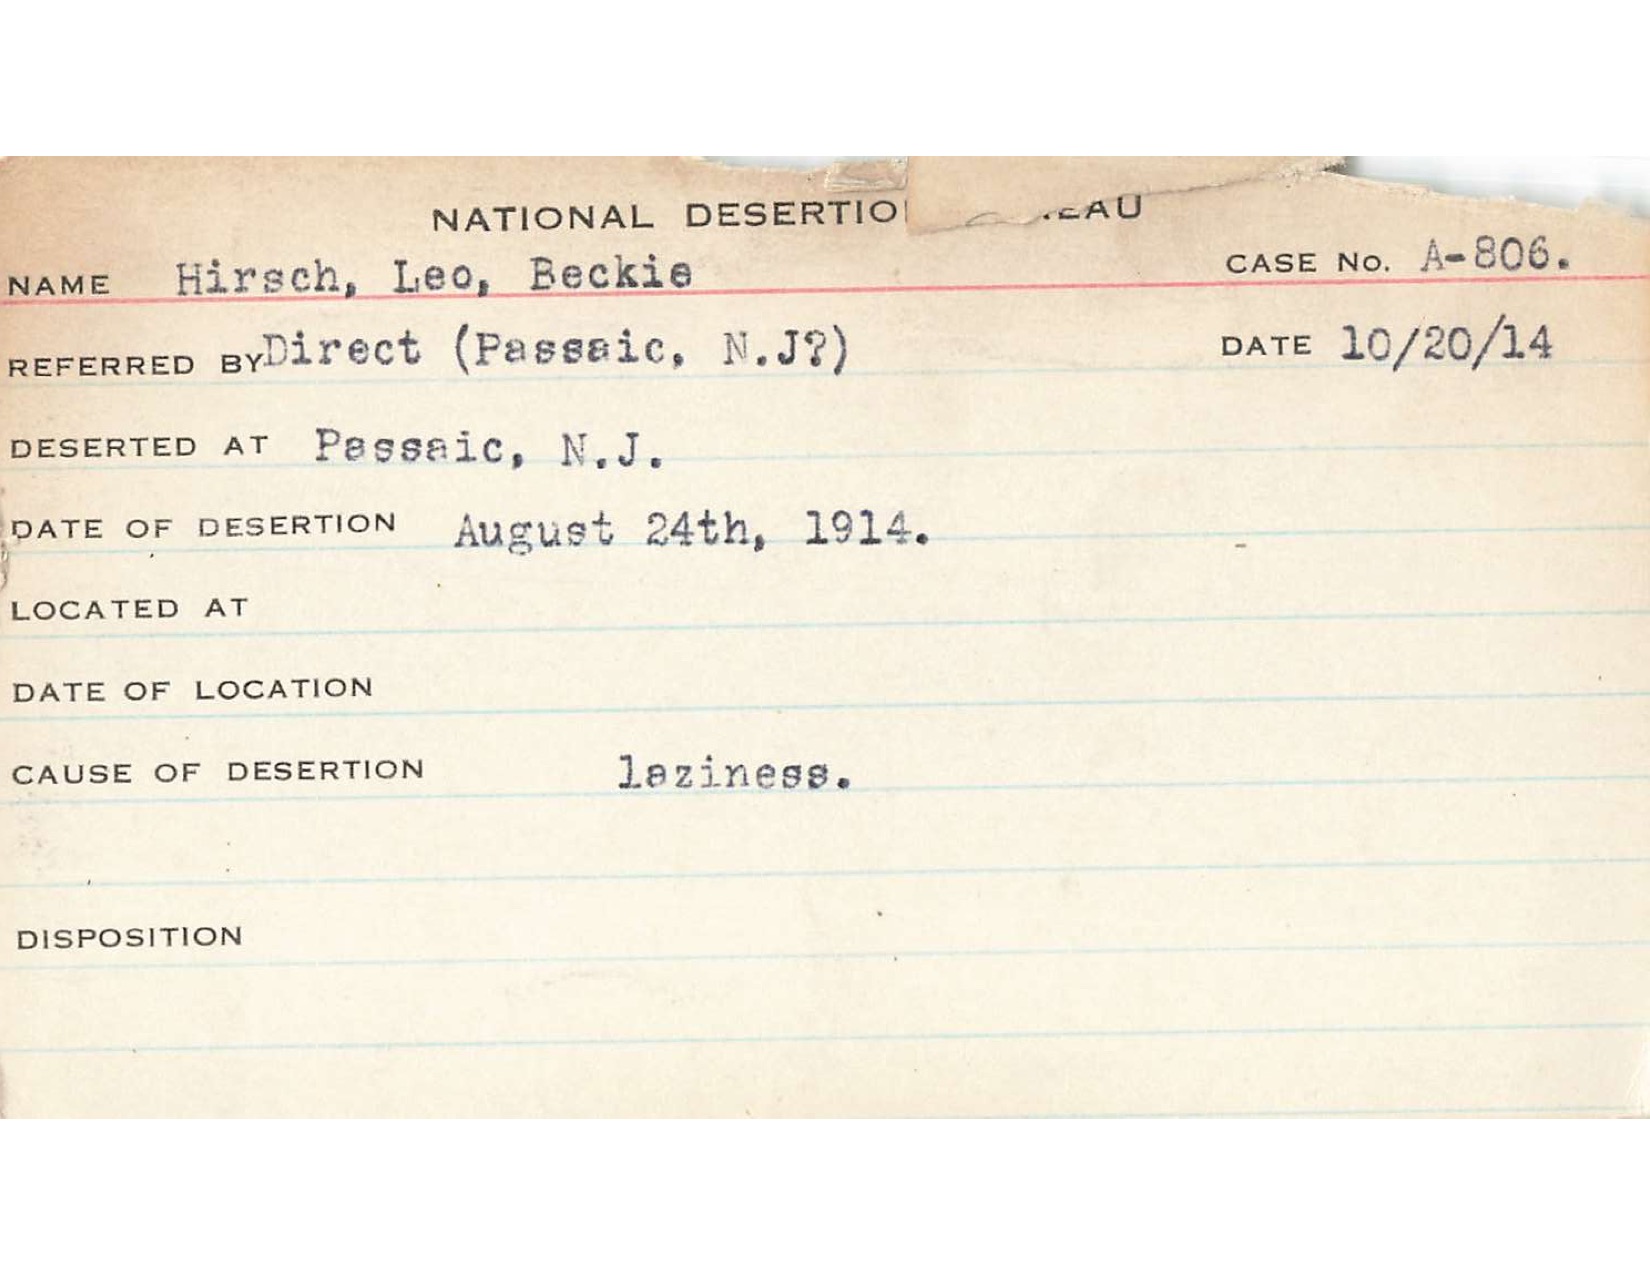 NATIONAL DESERTIO EAU
NAME Hirsch, Leo, Beckie CASE No. A-806.
REFERRED BY Direct (Passaic, N.J?) DATE 10/20/14
DESERTED AT Passaic, N.J.
DATE OF DESERTION August 24th, 1914.
LOCATED AT
DATE OF LOCATION
CAUSE OF DESERTION laziness.
DISPOSITION